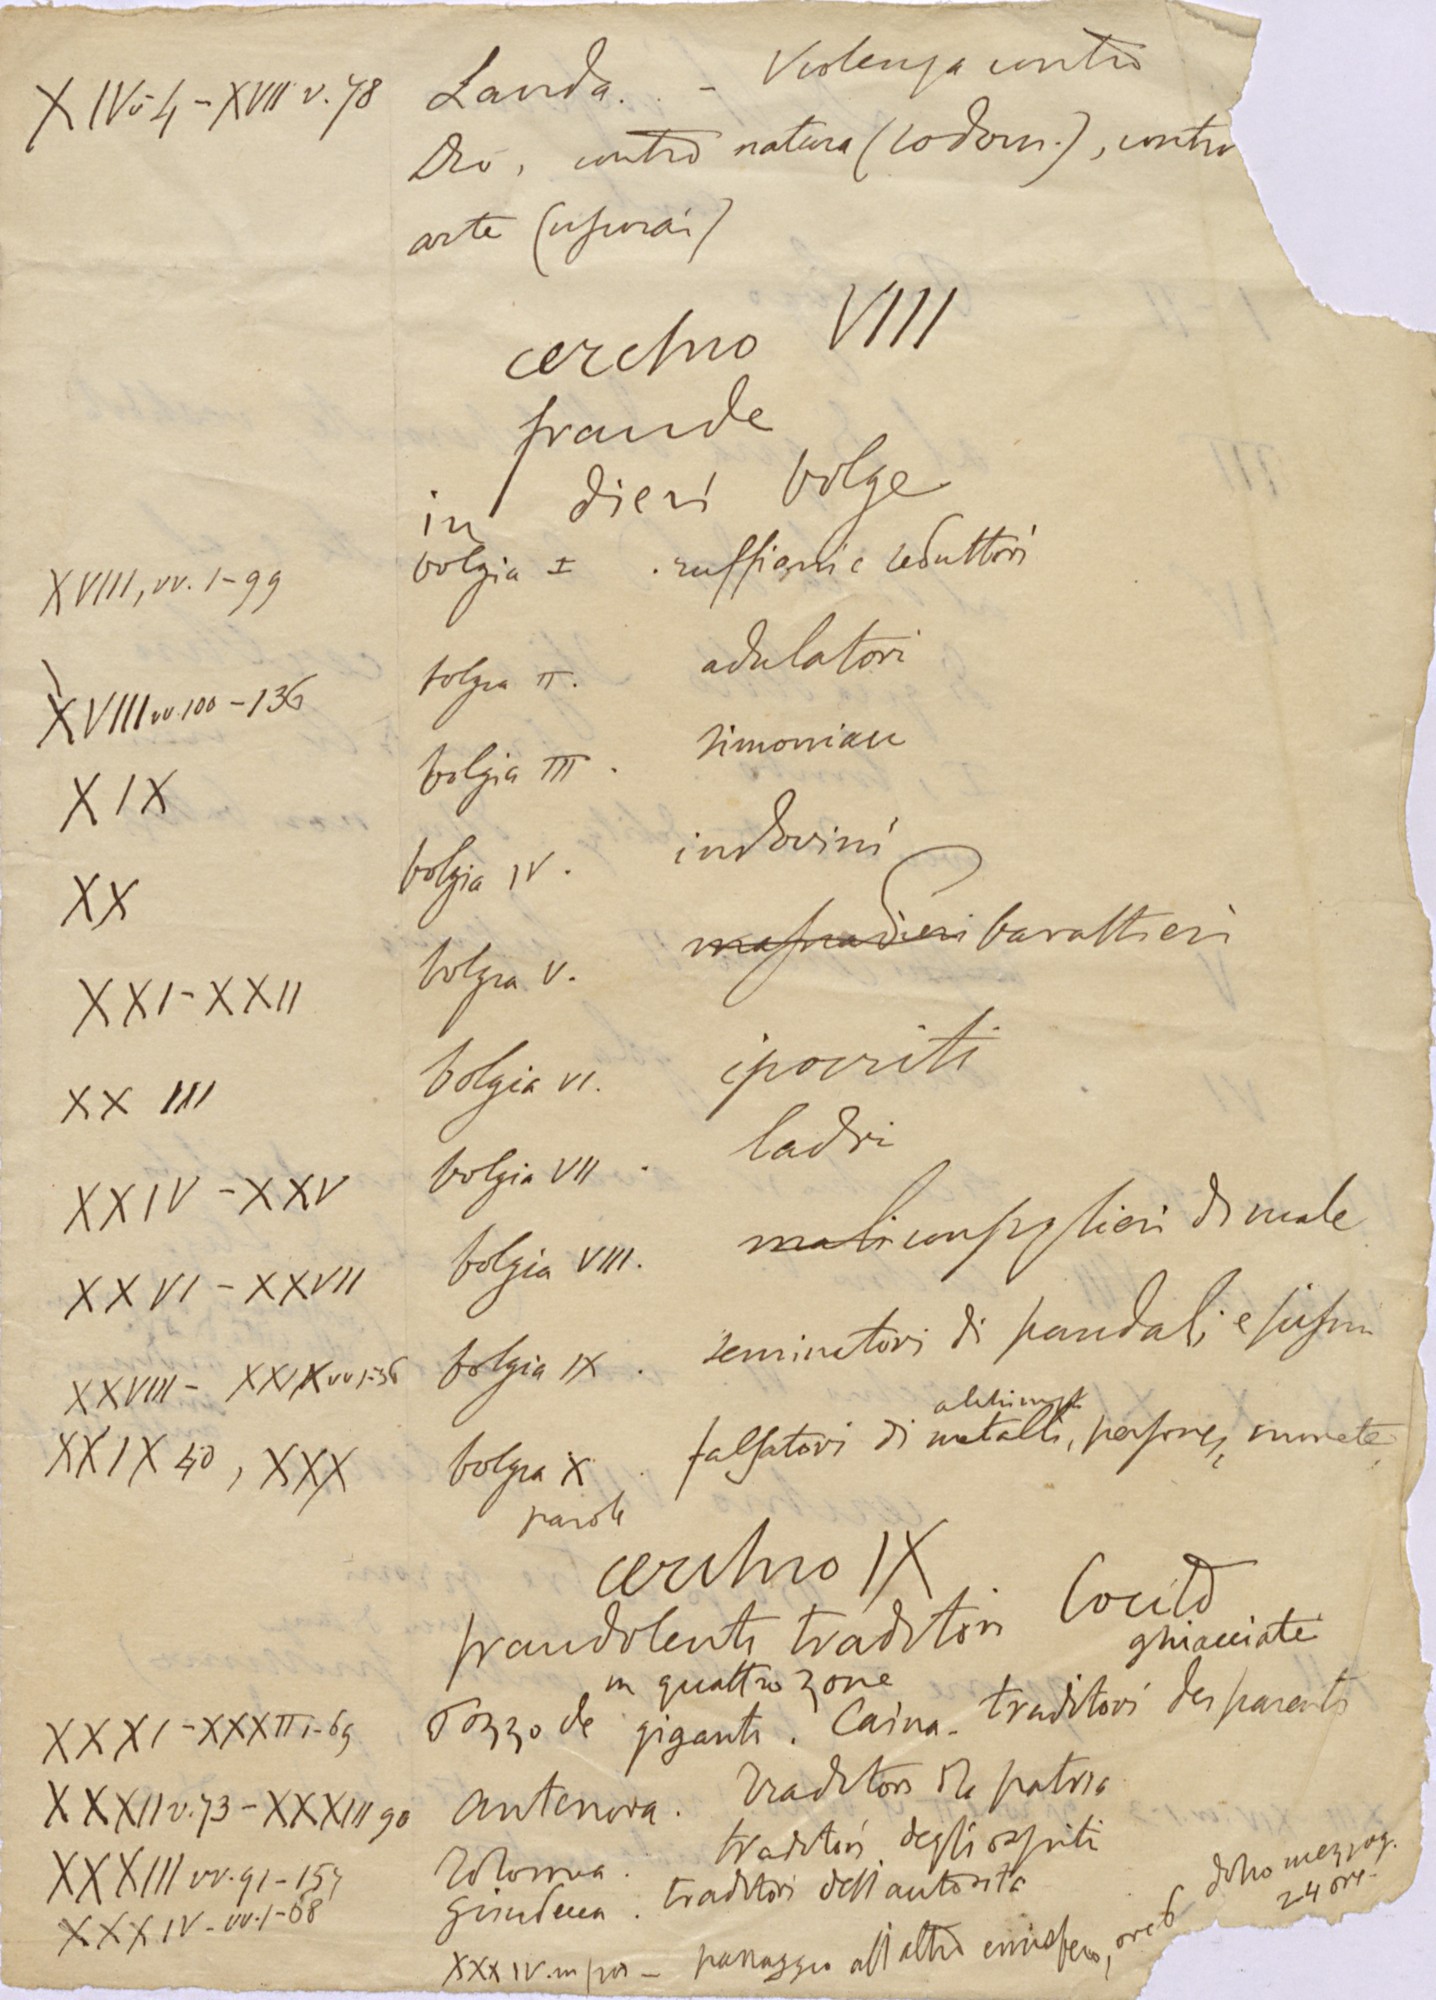 XIV v 4 - XVII v. 78 Landa. - Violenza contro
Dio, contro natura (sodom.), contro
arte (usurai)
cerchio VIII
fraude
in dieci bolge
XVIII, vv. 1-99 bolgia I . ruffiani e seduttori
XVIII vv. 100-136 bolgia II. adulatori
XIX bolgia III. simoniaci
XX bolgia IV. indovini
XXI-XXII bolgia V. barattieri
XXIII bolgia VI. ipocriti
XXIV-XXV bolgia VII. ladri
XXVI-XXVII bolgia VIII. mali consiglieri di male
XXVIII- XXIX vv 1-36 bolgia IX. seminatori di scandali e scismi
alchimist
XXIX 40, XXX bolgia X falsatori di metalli, persone, monete,
parole
cerchio IX
fraudolenti traditori Cocito
ghiacciate
in quattro zone
XXXI-XXXII 1-69 Pozzo de giganti. Caina - traditori dei parenti
XXXII v. 73-XXXIII 90 antenora. traditori d la patria
XXXIII vv. 91-157 Tolomea. traditori degli ospiti
XXXIV-vv. 1-68 giudecca. traditori dell'autorità
XXXIV. in poi - passaggio all'altro emisfero, ore 6 dopo mezzog.
24 ore-